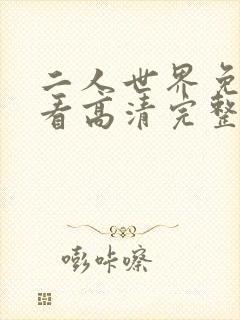 二人世界免
看高清完整
嘭咔嚓